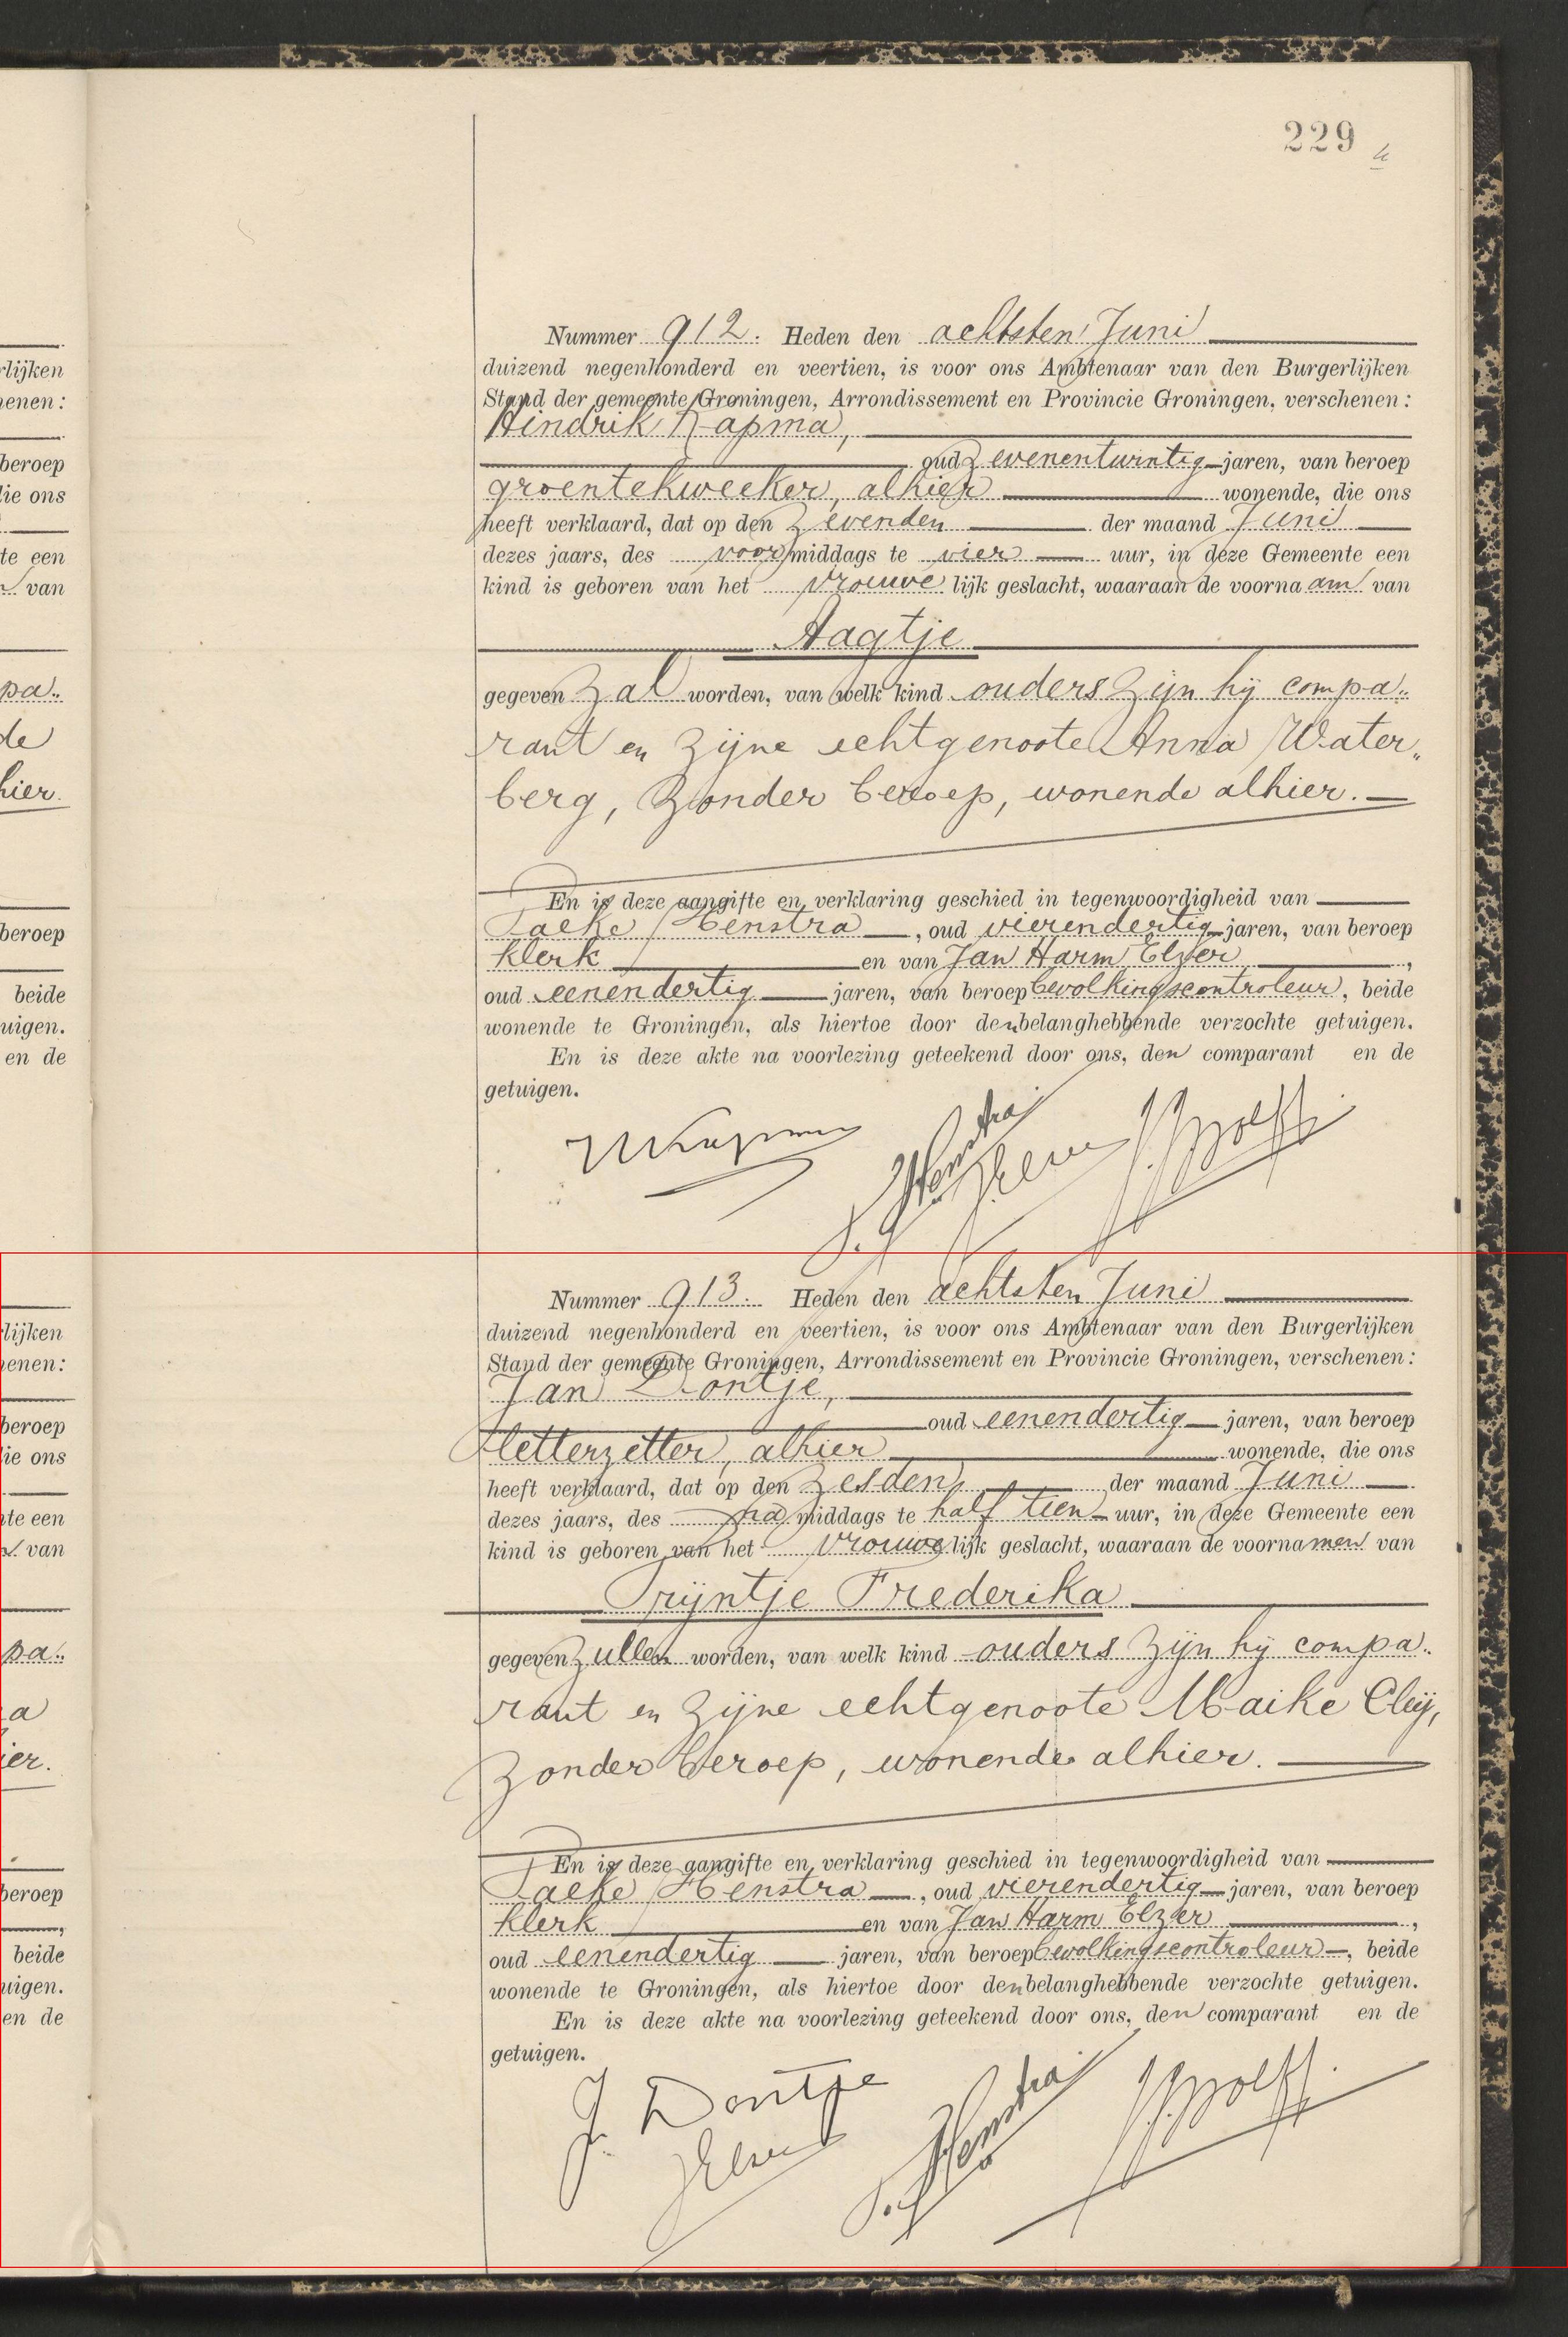 229
Nummer 912. Heden den achtsten Juni
duizend negenhonderd en veertien, is voor ons Ambtenaar van den Burgerlijken
Stand der gemeente Groningen, Arrondissement en Provincie Groningen, verschenen:
Hindrik Kapma,
oud zevenentwintig jaren, van beroep
groentekweeker, alhier wonende, die ons
heeft verklaard, dat op den zevenden der maand Juni
dezes jaars, des voormiddags te vier uur, in deze Gemeente een
kind is geboren van het vrouwelijk geslacht, waaraan de voornaam van
Aagtje
gegeven zal worden, van welk kind ouders zijn hij compa„
rant en zijne echtgenoote Anna Water„
berg, zonder beroep, wonende alhier.
En is deze aangifte en verklaring geschied in tegenwoordigheid van
Taeke Henstra, oud vierendertig jaren, van beroep
klerk en van Jan Harm Elzer,
oud eenendertig jaren, van beroep bevolkingscontroleur, beide
wonende te Groningen, als hiertoe door den belanghebbende verzochte getuigen.
En is deze akte na voorlezing geteekend door ons, den comparant en de
getuigen.
Nummer 913. Heden den achtsten Juni
duizend negenhonderd en veertien, is voor ons Ambtenaar van den Burgerlijken
Stand der gemeente Groningen, Arrondissement en Provincie Groningen, verschenen:
Jan Dontje,
oud eenendertig jaren, van beroep
letterzetter, alhier wonende, die ons
heeft verklaard, dat op den zesden der maand Juni
dezes jaars, des namiddags te half tien uur, in deze Gemeente een
kind is geboren van het vrouwelijk geslacht, waaraan de voornamen van
Trijntje Frederika
gegeven zullen worden, van welk kind ouders zijn hij compa„
rant en zijne echtgenoote Maike Cleij,
zonder beroep, wonende alhier.
En is deze aangifte en verklaring geschied in tegenwoordigheid van
Taeke Henstra, oud vierendertig jaren, van beroep
klerk en van Jan Harm Elzer,
oud eenendertig jaren, van beroep bevolkingscontroleur, beide
wonende te Groningen, als hiertoe door den belanghebbende verzochte getuigen.
En is deze akte na voorlezing geteekend door ons, den comparant en de
getuigen.
J. Dontje